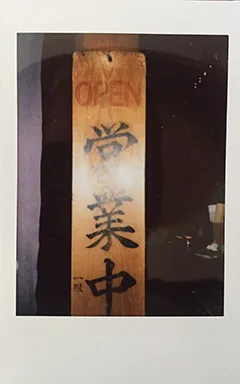 OPEN
営業中